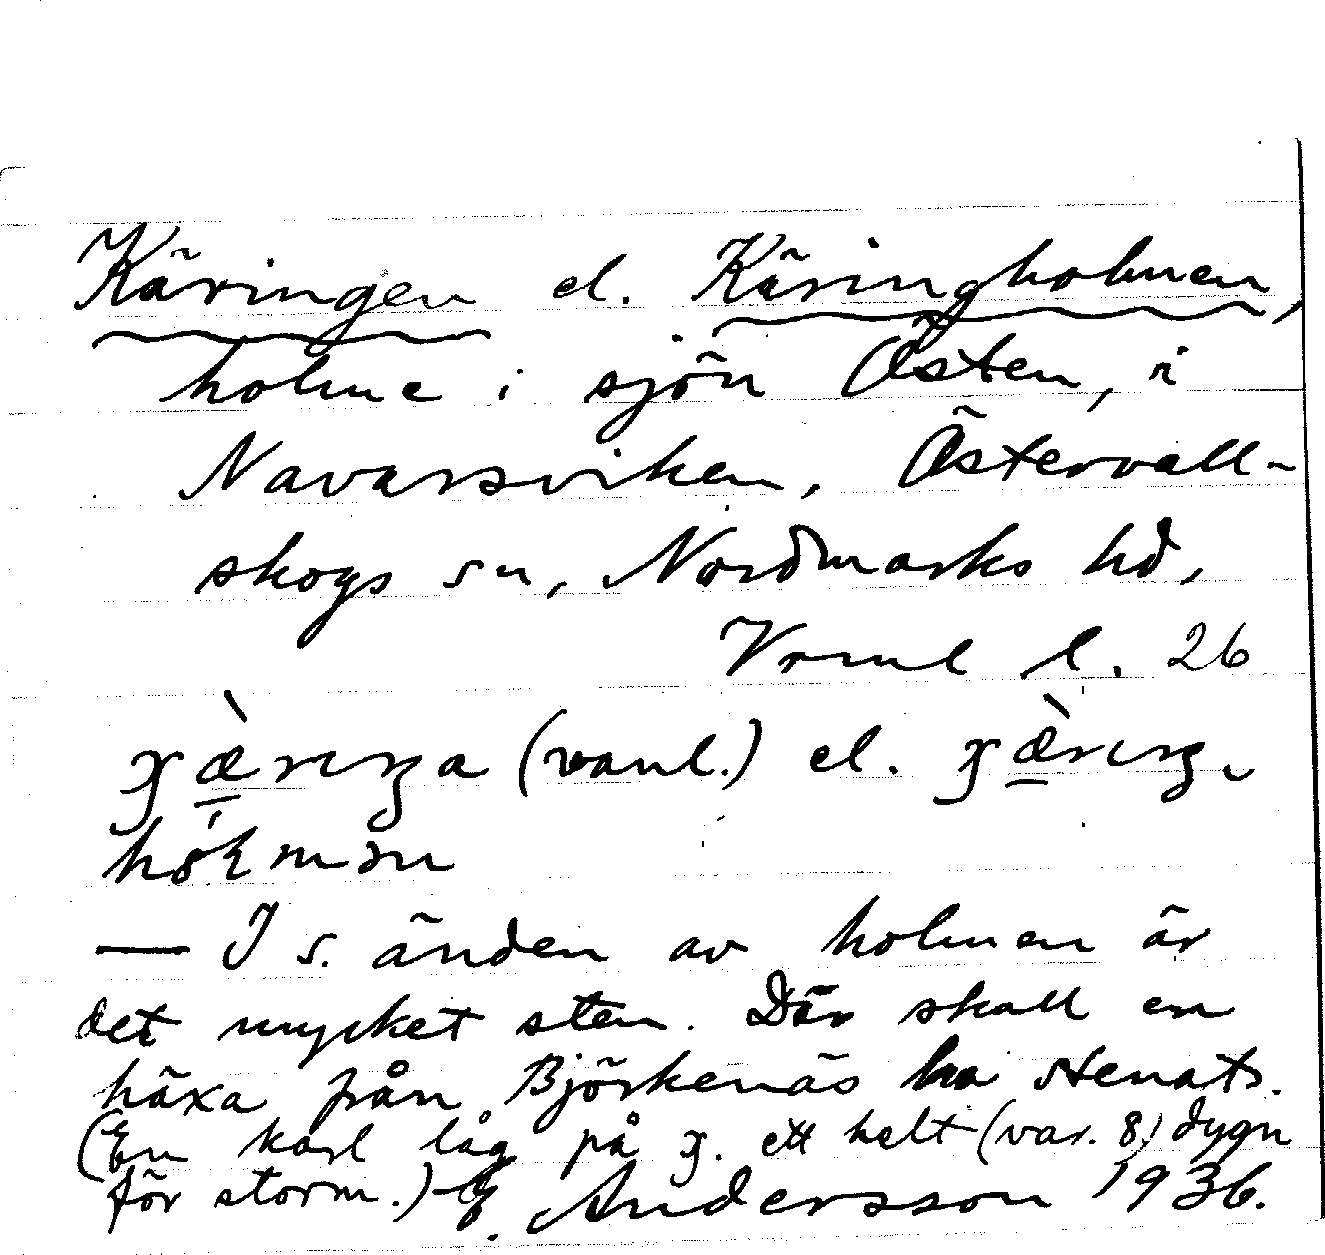 Käringen el. Käringholmen,
holme i sjön Östen, i
Navarsviken, Östervall-
skogs sn, Nordmarks hd,
Vrml l. 26
(vanl.) el.
— I s. änden av holmen är
det mycket sten. Där skall en
häxa från Björkenäs ha stenats.
(En karl låg på g. ett helt (var. 8) dygn
för storm.) E. Andersson 1936.